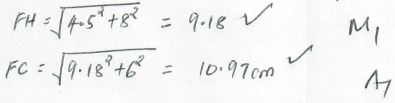 FH = √4.5² + 8² = 9.18 ✓ M1
FC = √9.18² + 6² = 10.97cm ✓ A1